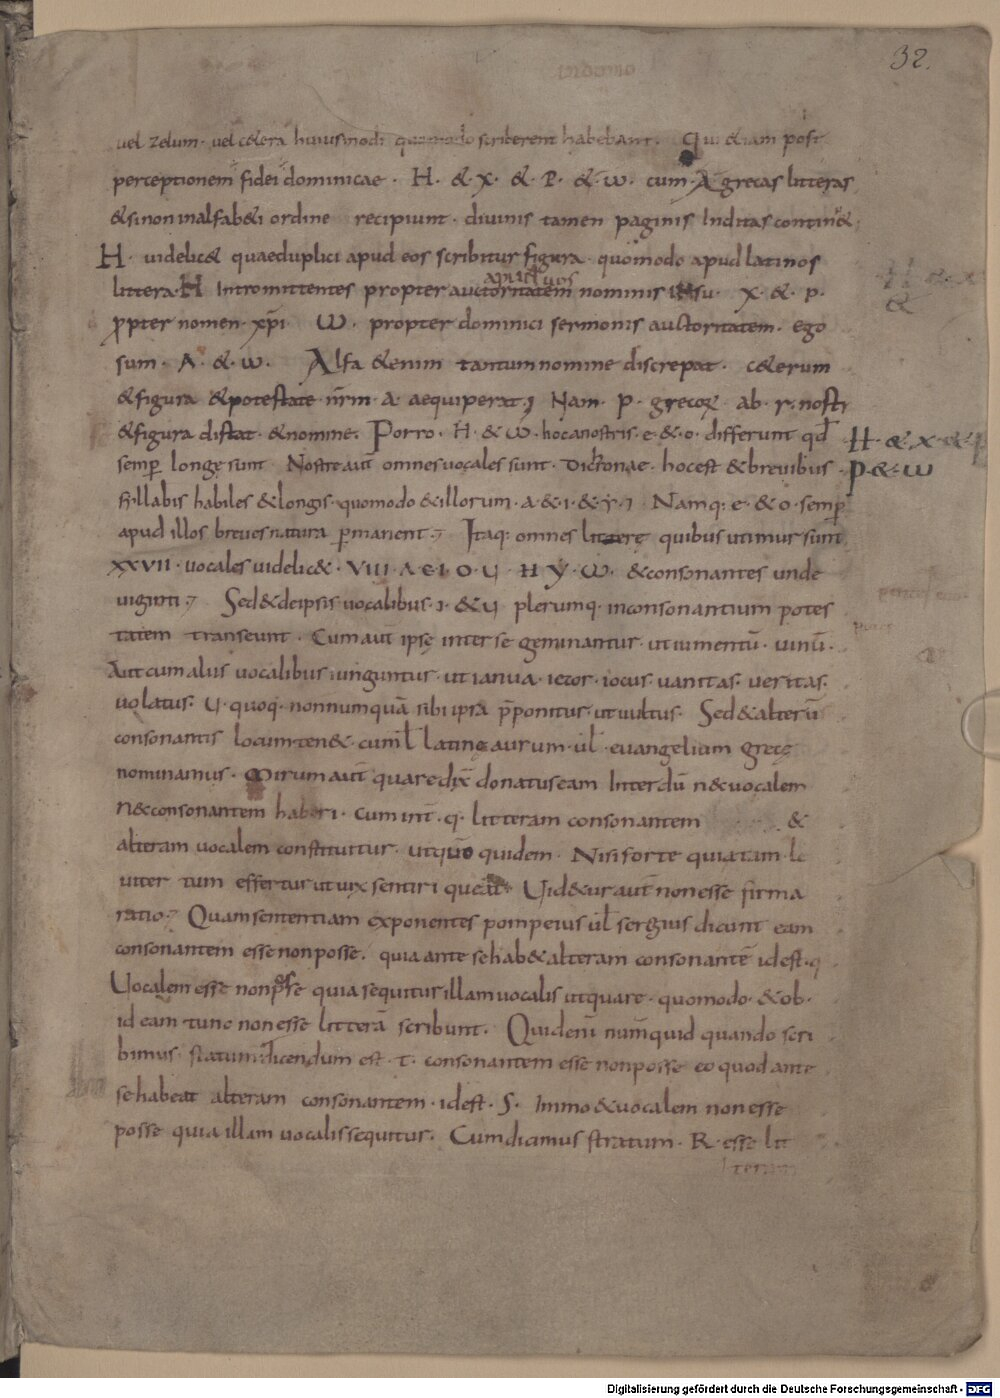 32.
uel zelum · uel c&era huiusmodi quomodo scriberent habebant · Qui &iam post
perceptionem fidei dominicae · H · & · X · & · P · & · ω · cum · A grecas litteras
& si non in alfab&i ordine recipiunt · diuinis tamen paginis Inditas contin&
H · uidelic& quae duplici apud eos scribitur figura · quomodo apud latinos
littera · H Intromittentes propter auctoritatem nominis ihesu · X · & · p ·
ꝓpter nomen · xp̄i · ω · propter dominici sermonis auctoritatem · ego
sum · A · & · ω · Alfa &enim tantum nomine discrepat · c&erum
& figura & potestate nr̄m · a · aequiperat · Nam · p · grecoꝝ ab · r · nostr
& figura distat · & nomine · Porro · H · & ω · hoc a nostris · e · & · o · differunt qđ
H · & · X · & · p
semꝑ longe sunt Nostre aut omnes uocales sunt · Dichronae · hoc est & breuibus
P · & · ω
syllabis habiles & longis · quomodo & illorum · a · & · i · & · y · Namq: e · & o · semꝑ
apud illos breues natura ꝑmanent · Itaq: omnes littere quibus utimur sunt
XXVII · uocales uidelic& · VIII · A · E · I · O · Ч · H · Y · ω · & consonantes unde
uiginti · Sed & de ipsis uocalibus · I · & Ч plerumq · in consonantium potes
tatem transeunt · Cum aut̄ ipse inter se geminantur · ut iumentū · uinū ·
Aut cum aliis uocalibus iunguntur · ut ianua · ietor · iocus uanitas · ueritas ·
uolatus · Ч · quoq · nonnumquā sibi ipsa p̄ponitur · ut uultus · Sed & alteriꝰ
consonantis locum ten& · cum ł latine aurum · uł · euangelium grece
nominamus · Mirum aut̄ quare dix̄ donatus eam Interdū n& uocalem
n& consonantem haberi · cum int̄ · q · litteram consonantem &
alteram uocalem constituitur · ut quo quidem · Nisi forte quia tam le
uiter tum effertur ut uix sentiri queat · Uid&ur aut̄ non esse firma
ratio · Quam sententiam exponentes pompeius uł sergius dicunt eam
consonantem esse non posse · quia ante se hab& alteram consonantē id est · q
Uocalem esse non posse quia sequitur illam uocalis ut quare · quomodo · & ob ·
id eam tunc non esse litterā scribunt · Quid enī numquid quando scri
bimus · statum dicendum est · t · consonantem esse non posse eo quod ante
se habeat alteram consonantem · id est · S · Immo & uocalem non esse
posse quia illam uocalis sequitur · Cum dicimus stratum · R · esse lit
teram
Digitalisierung gefördert durch die Deutsche Forschungsgemeinschaft - DFG